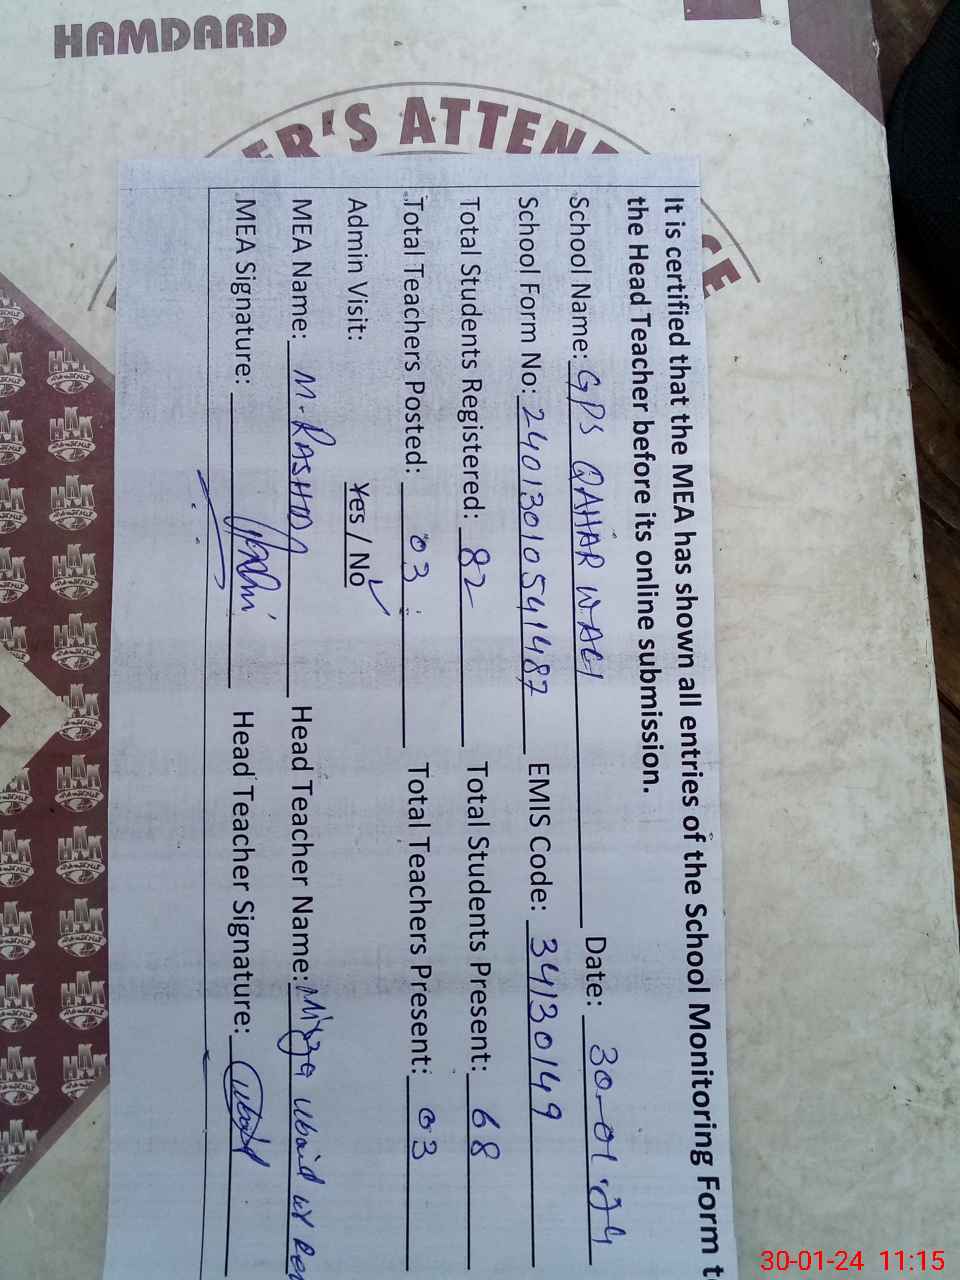 HAMDARD
ER'S ATTEN
CE
It is certified that the MEA has shown all entries of the School Monitoring Form t
the Head Teacher before its online submission.
School Name: GPS QAHAR WALI Date: 30-01-24
School Form No: 24013010541487 EMIS Code: 34130149
Total Students Registered: 82 Total Students Present: 68
Total Teachers Posted: 03 Total Teachers Present: 03
Admin Visit: Yes / No ✓
MEA Name: M. RASHID Head Teacher Name: Mirza Ubaid ur Reh
MEA Signature: Head Teacher Signature: Ubaid
30-01-24 11:15